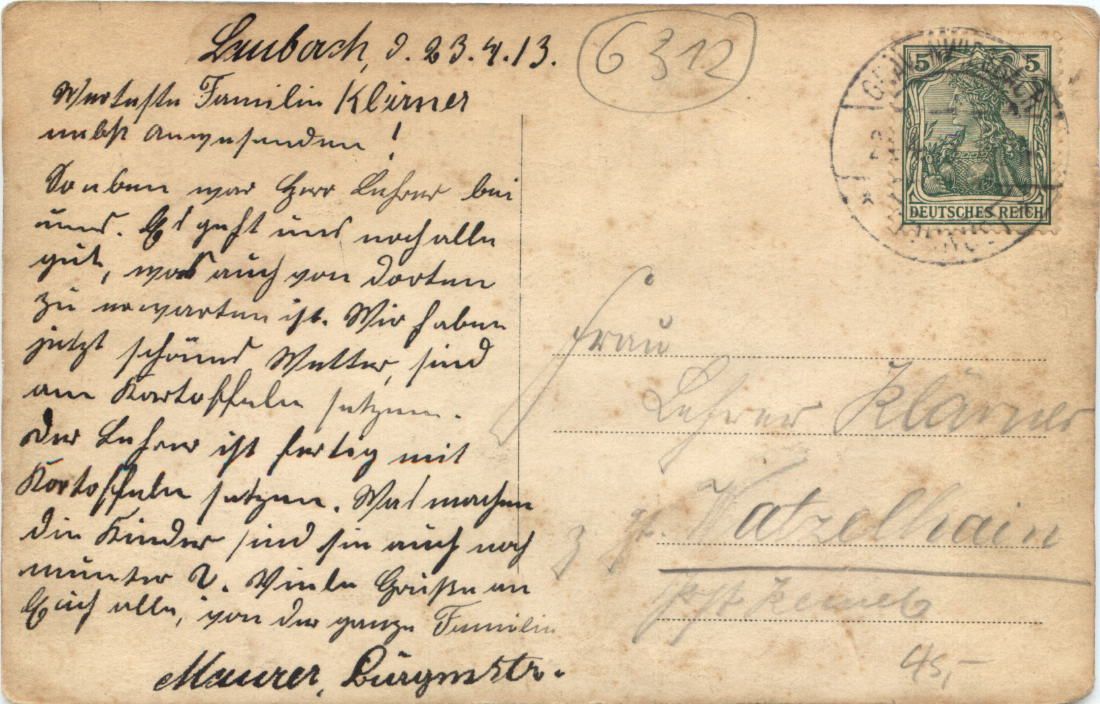 Laubach, d. 23.4.13.
6312
Werteste Familie Klärner
nebst Anwesenden!
Soeben war Herr Lehrer bei
uns. Es geht uns noch alle
gut, was auch von dorten
zu erwarten ist. Wir haben
jetzt schönes Wetter, sind
am Kartoffeln setzen.
Der Lehrer ist fertig mit
Kartoffeln setzen. Was machen
die Kinder sind sie auch noch
munter?. Viele Grüße an
Euch alle, von der ganze Familie
Maurer, Bürgmstr.
5 5
DEUTSCHES REICH
Frau
Lehrer Klärner
Watzelhain
Pst
45,-